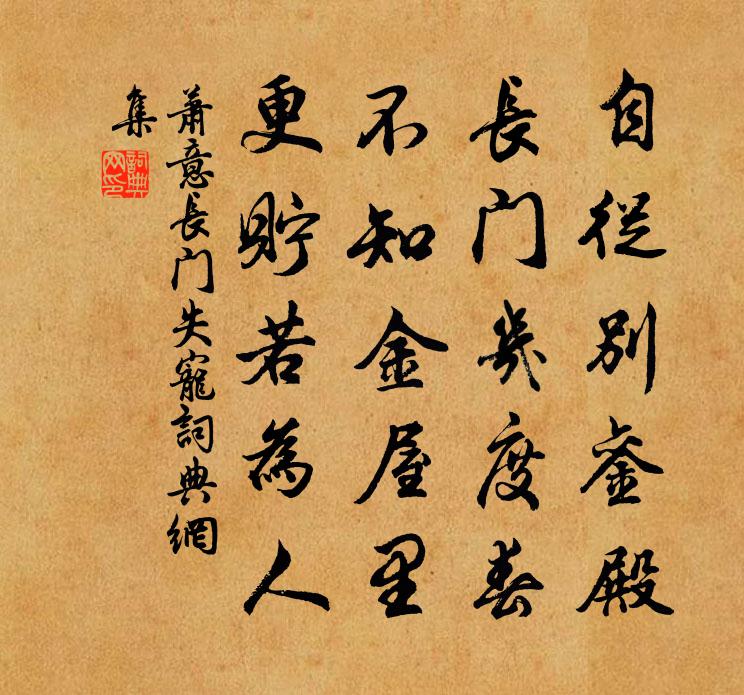 自從別鑾殿
長門幾度春
不知金屋里
更貯若為人
蕭意長門失寵詞典網
集
詞典
网印